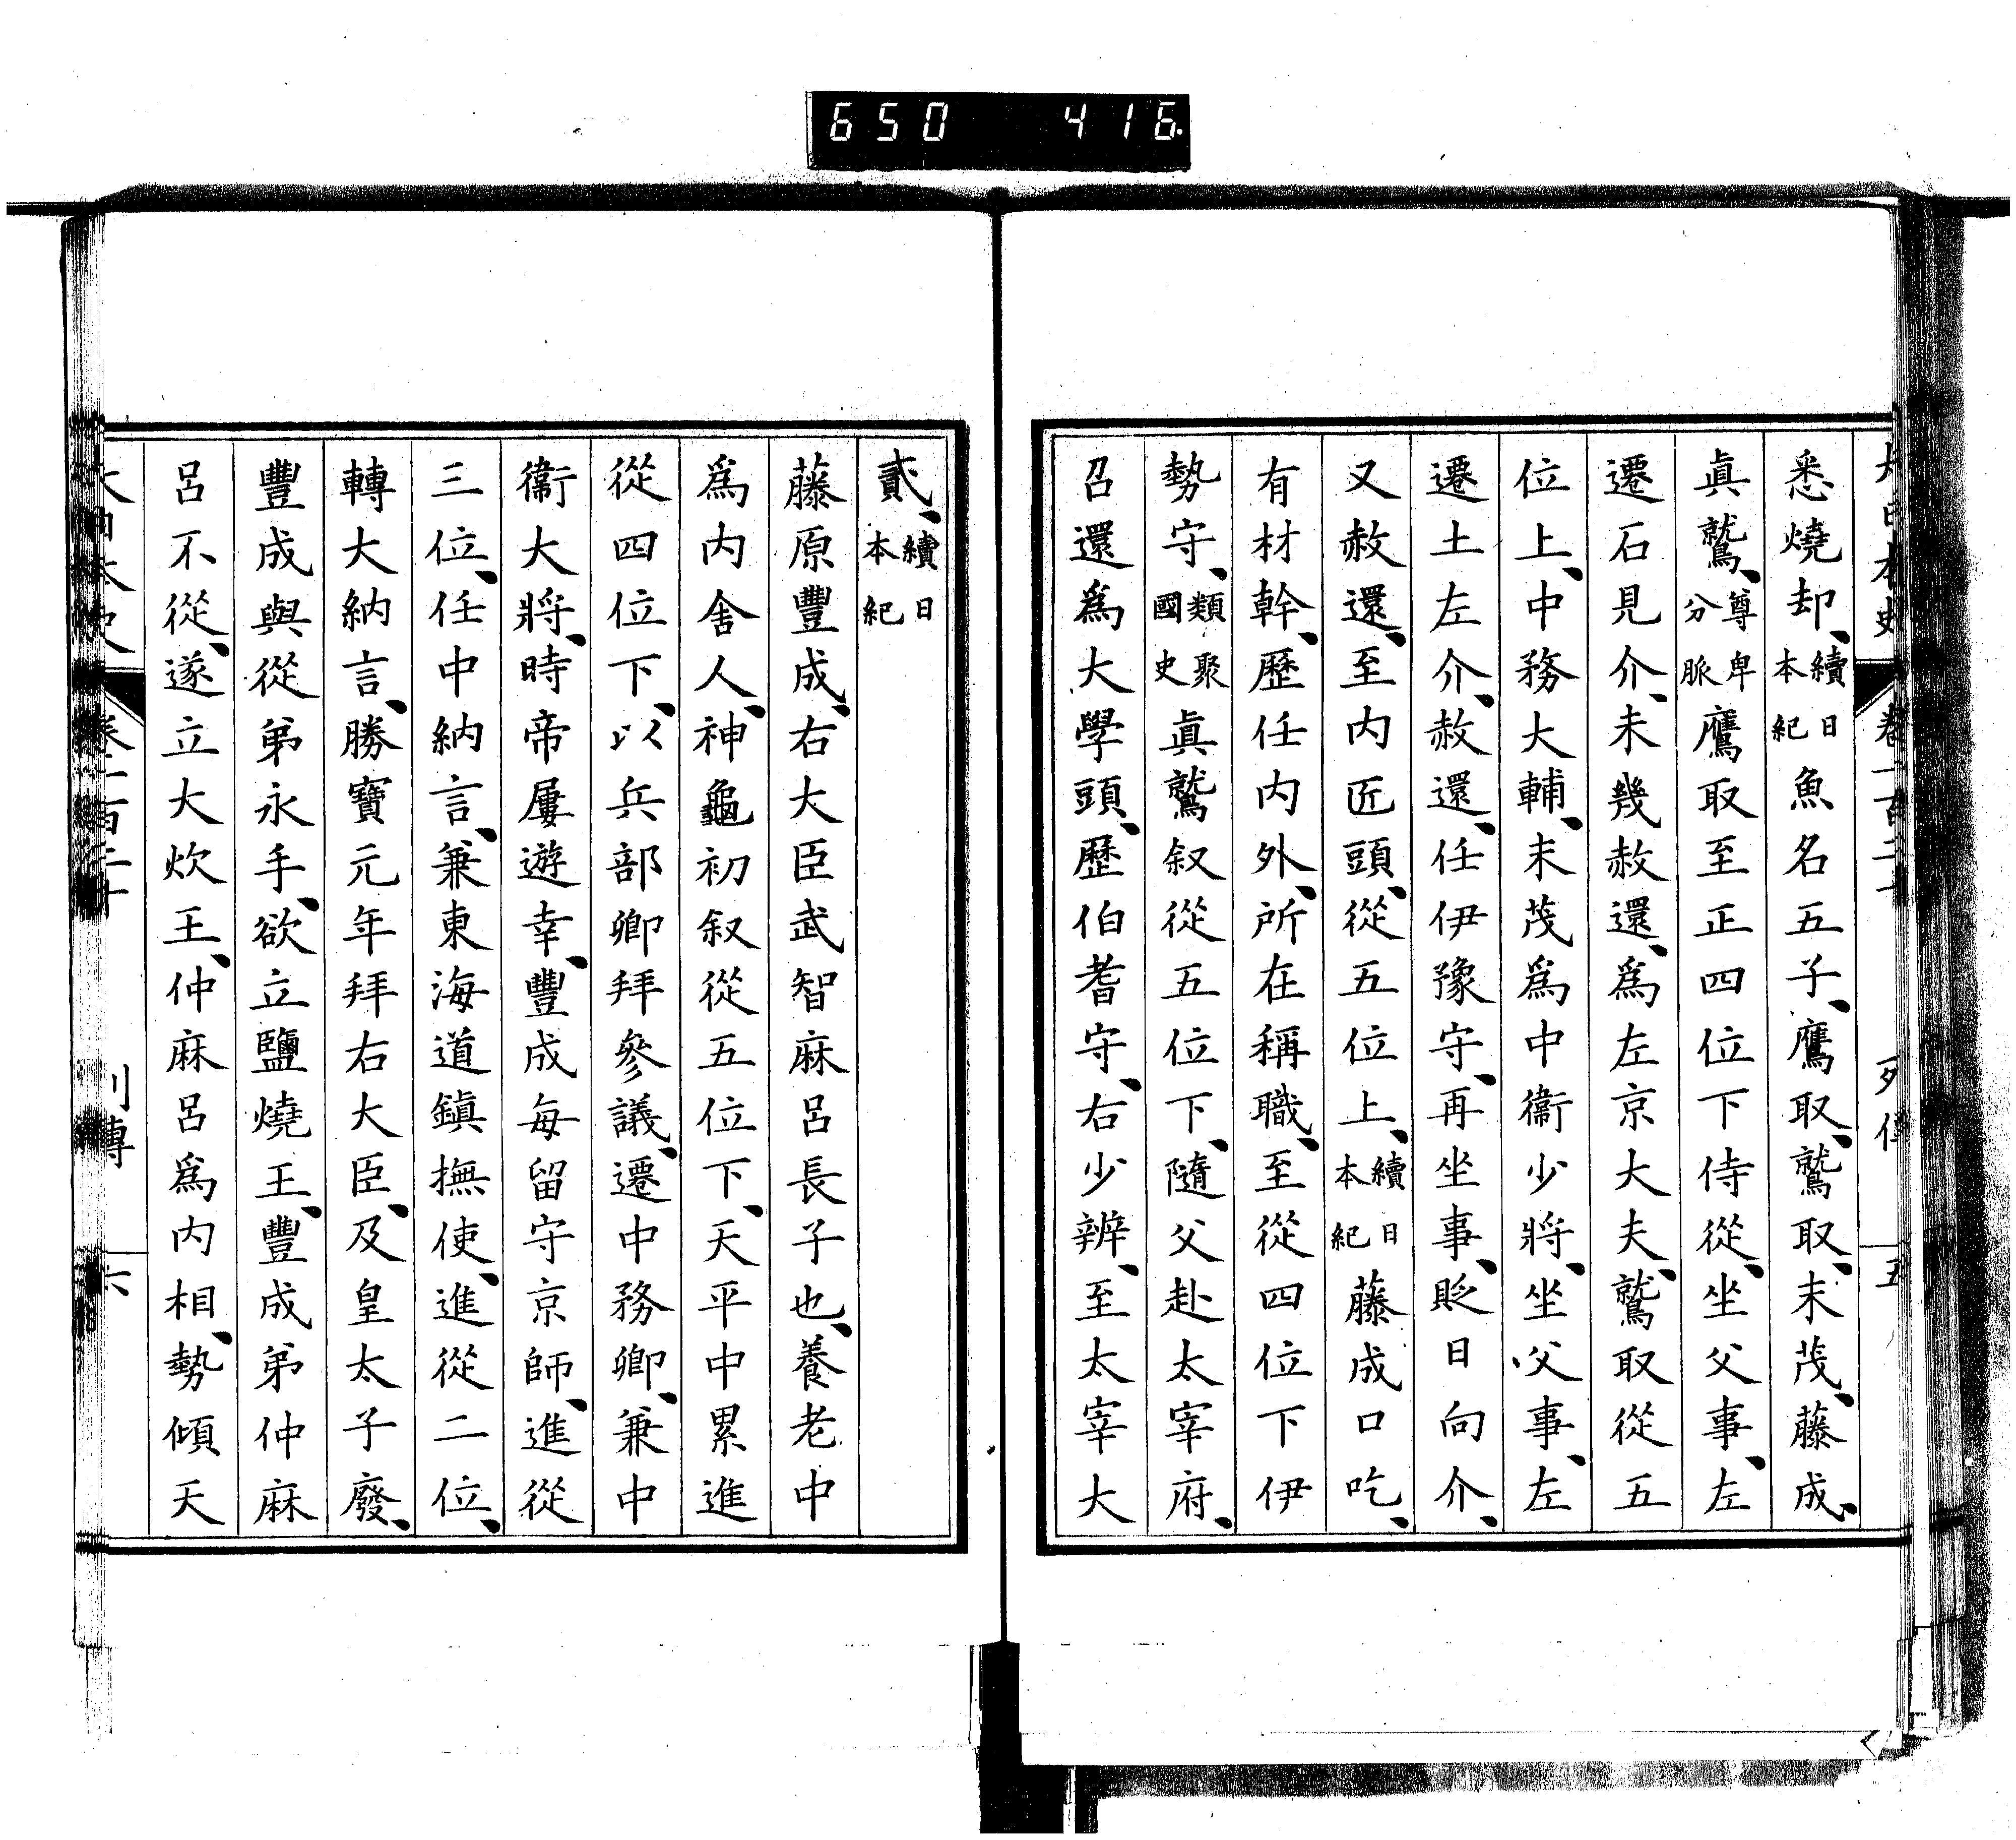 650 416.
大日本史 卷一百二十 列傳 五
悉燒却、續日本紀魚名五子、鷹取、鷲取、末茂、藤成、
眞鷲、尊卑分脈鷹取至正四位下侍從、坐父事、左
遷石見介、未幾赦還、爲左京大夫、鷲取從五
位上、中務大輔、末茂爲中衞少將、坐父事、左
遷土左介、赦還、任伊豫守、再坐事、貶日向介、
又赦還、至内匠頭、從五位上、續日本紀藤成口吃、
有材幹、歷任内外、所在稱職、至從四位下伊
勢守、類聚國史眞鷲叙從五位下、隨父赴太宰府、
召還爲大學頭、歷伯耆守、右少辨、至太宰大
貳、續日本紀
藤原豐成、右大臣武智麻呂長子也、養老中
爲内舍人、神龜初叙從五位下、天平中累進
從四位下、以兵部卿拜參議、遷中務卿、兼中
衞大將、時帝屢遊幸、豐成每留守京師、進從
三位、任中納言、兼東海道鎭撫使、進從二位、
轉大納言、勝寶元年拜右大臣、及皇太子廢、
豐成與從弟永手、欲立鹽燒王、豐成弟仲麻
呂不從、遂立大炊王、仲麻呂爲内相、勢傾天
大日本史 卷一百二十 列傳 六